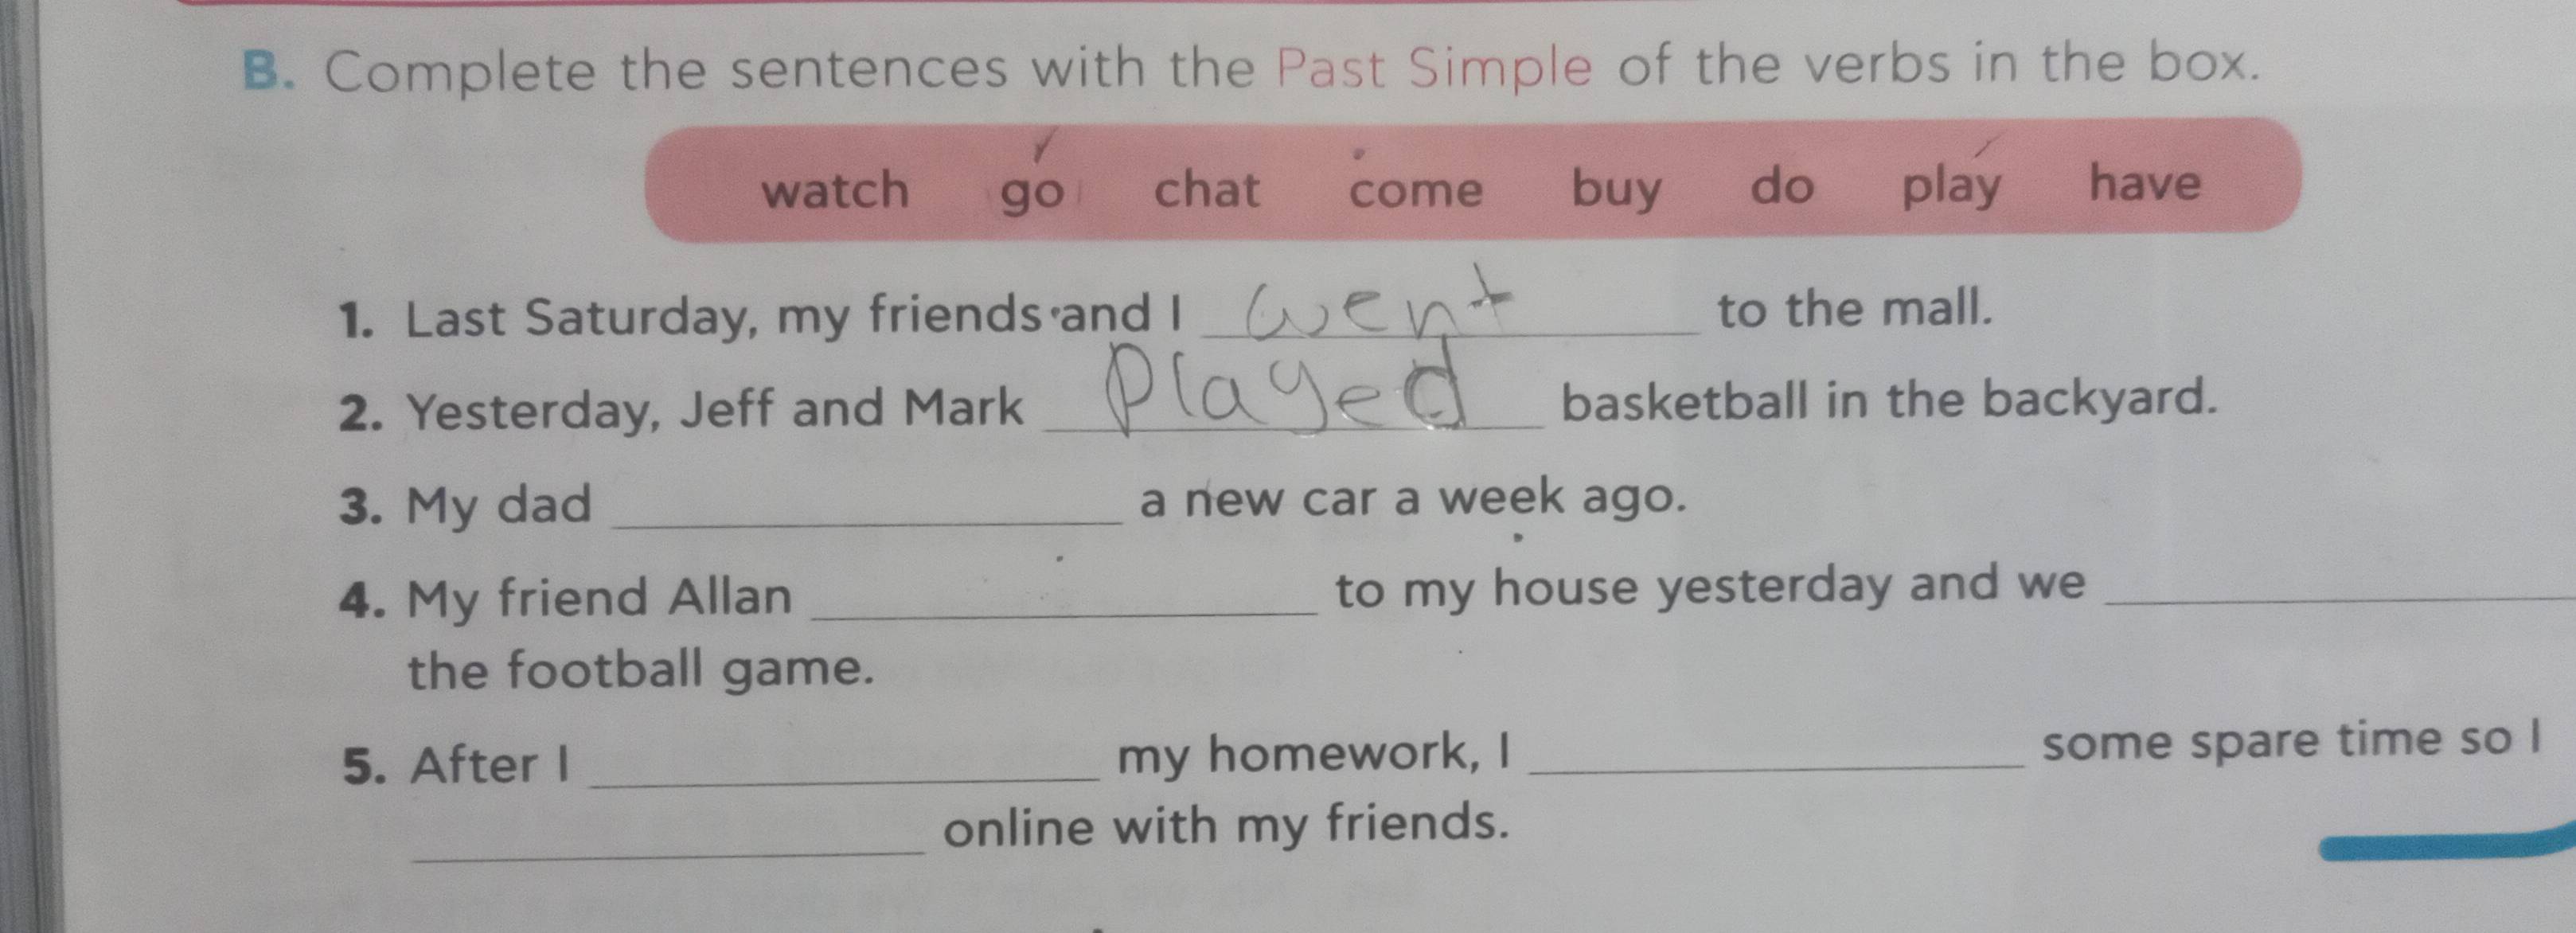 B. Complete the sentences with the Past Simple of the verbs in the box.
watch go chat come buy do play have
1. Last Saturday, my friends and I went to the mall.
2. Yesterday, Jeff and Mark played basketball in the backyard.
3. My dad ____________ a new car a week ago.
4. My friend Allan ____________ to my house yesterday and we ____________
the football game.
5. After I ____________ my homework, I ____________ some spare time so I
____________ online with my friends.